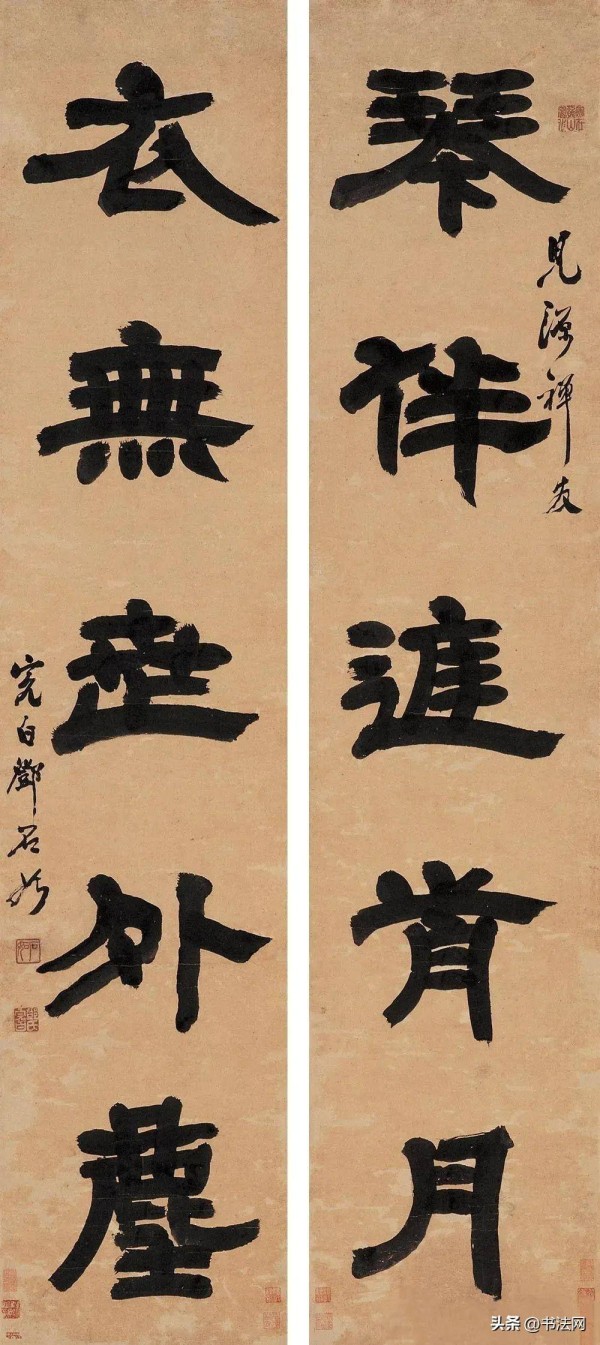 琴伴前月
見源禪友
衣無世外塵
完白鄧石如
头条 @书法网